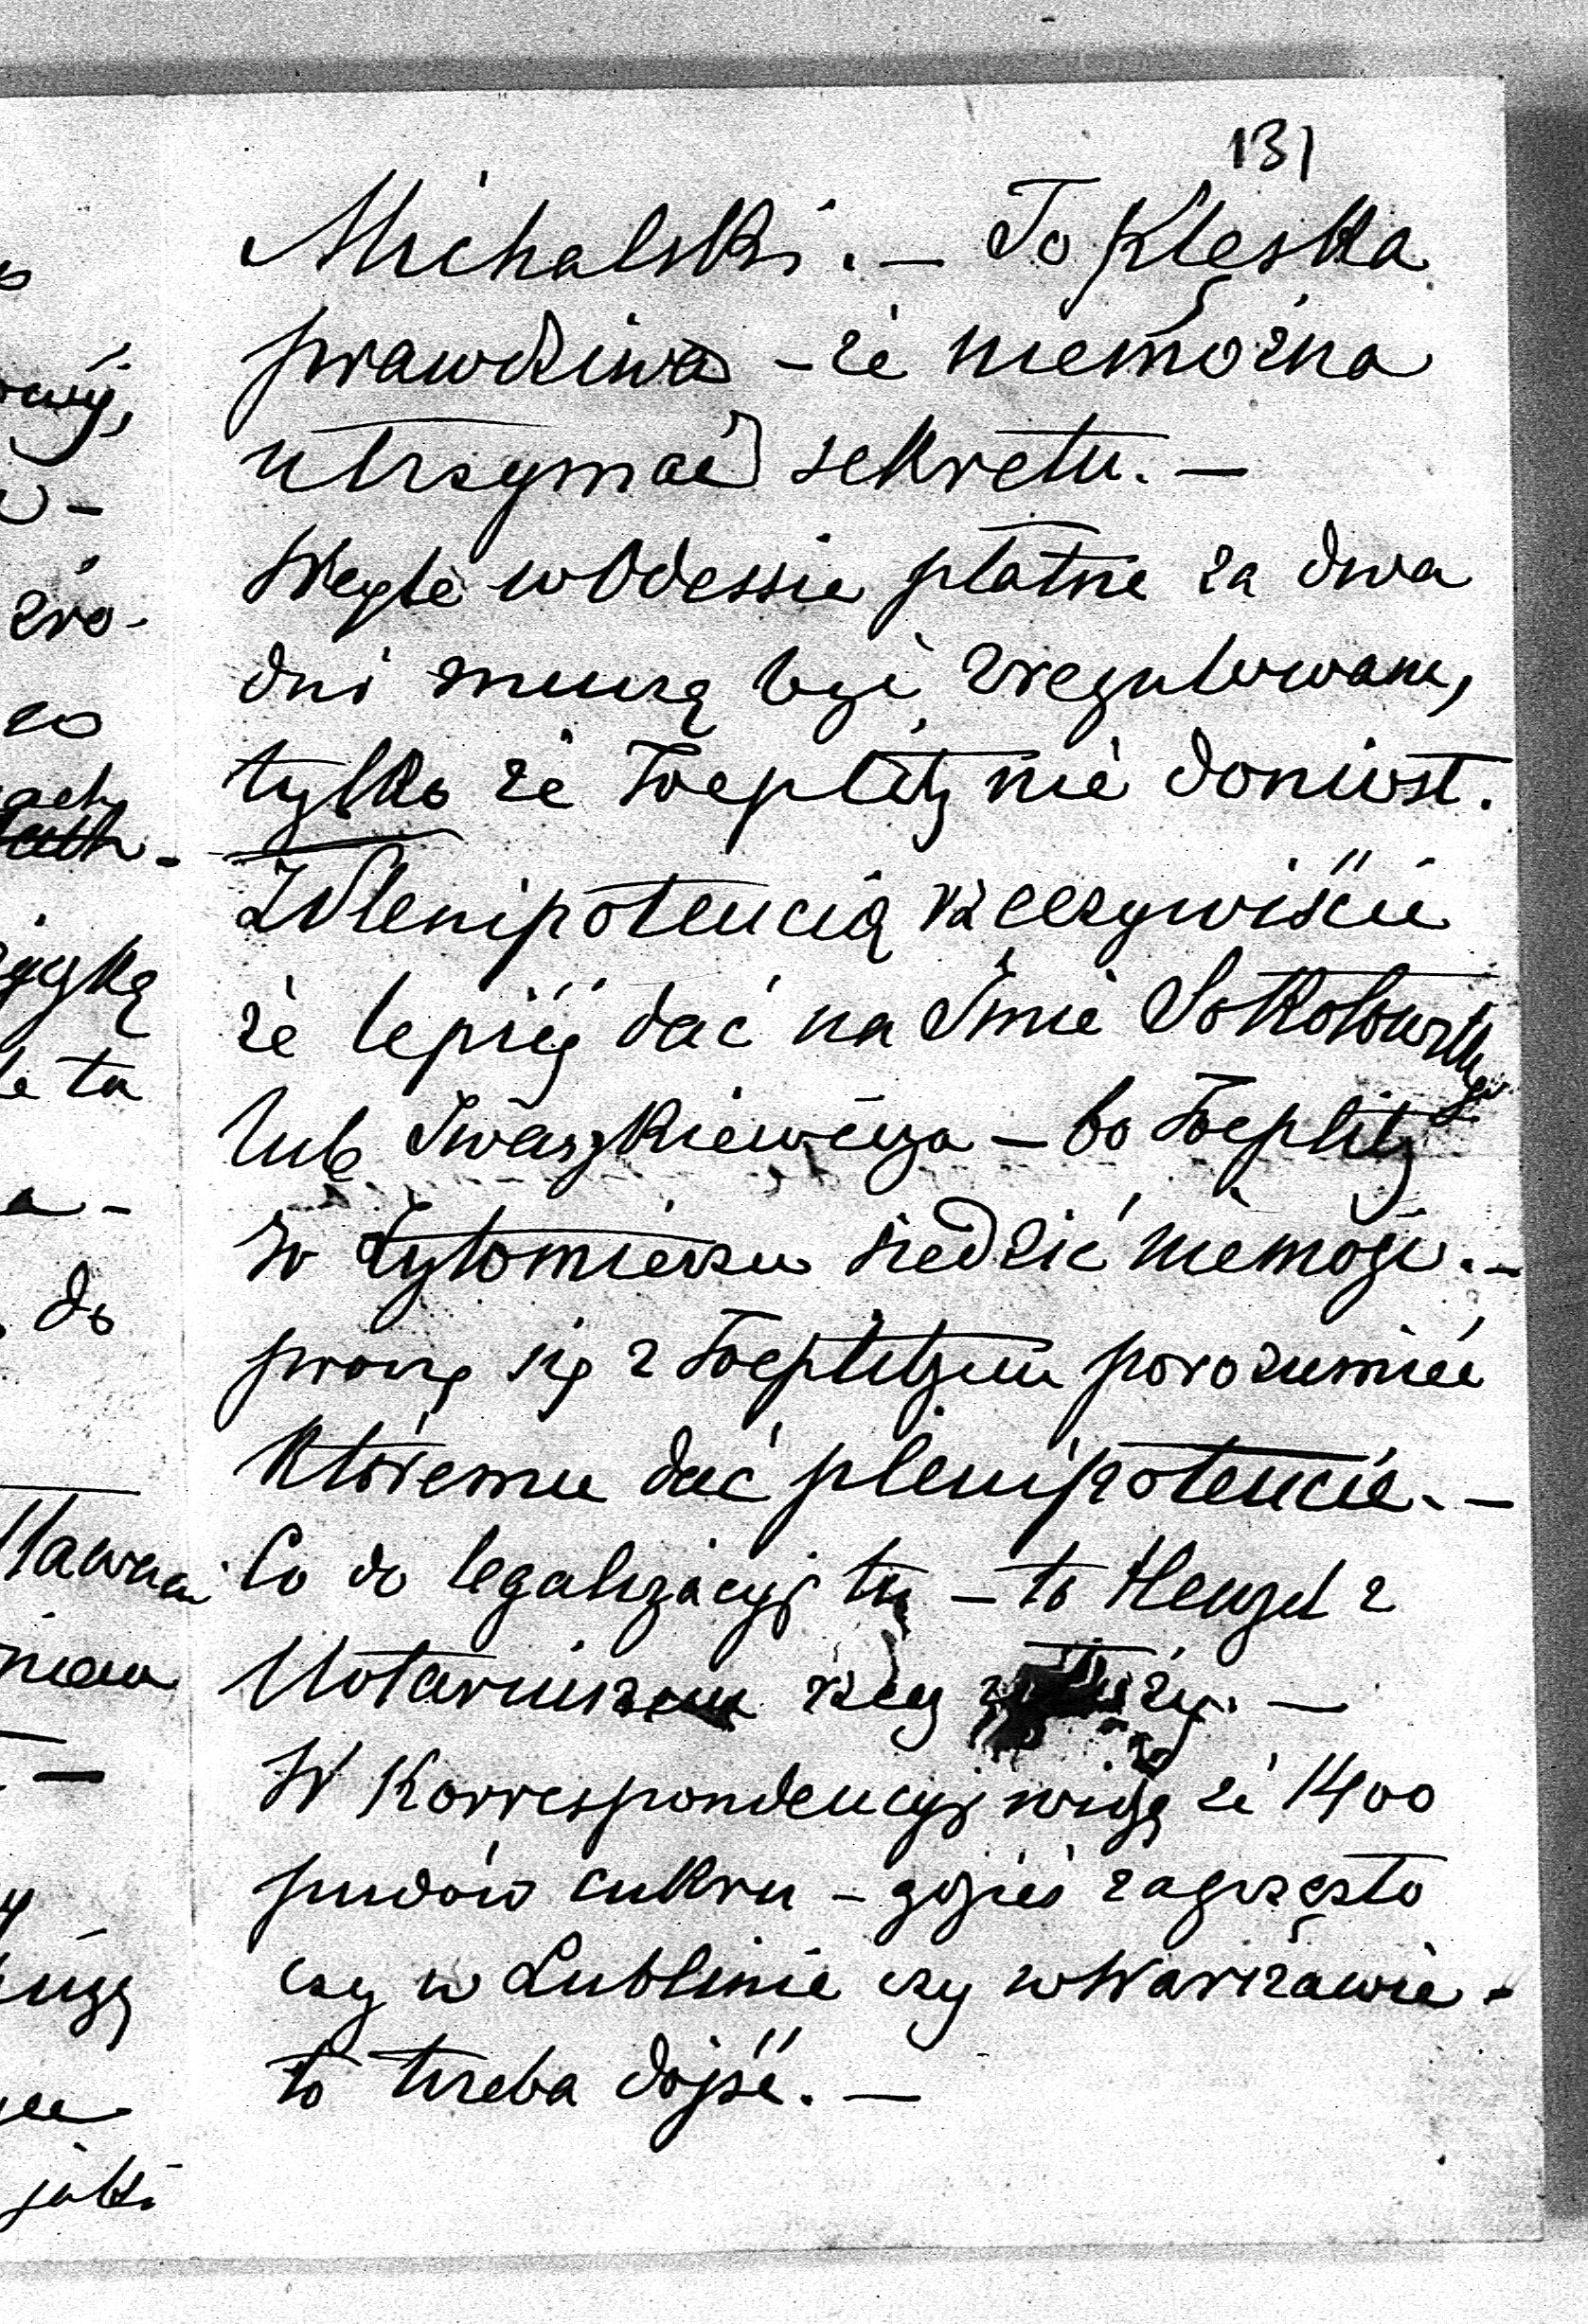 131
Michalski. — To klęska
prawdziwa – że niemożna
utrzymać sekretu. —
Węgle w Odessie płatne za dwa
dni muszą być uregulowane,
tylko że Toeplitz nie doniosł.
Z Plenipotencią rzeczywiście
że lepiéj dać na Imie Sokołowskiego
lub Iwaszkiewicza – bo Toeplitz
w Żytomierzu siedzić niemoże. –
proszę się z Toeplitzem porozumieć
któremu dać plenipotencie. –
Co do legalizacyj tu – to Henzel z
Notariuszem rzecz —
W Korrespondencyj widzę że 1400
pudów cukru – gdzieś zagrzęzło
czy w Lublinie czy w Warszawie –
to trzeba dojść. —